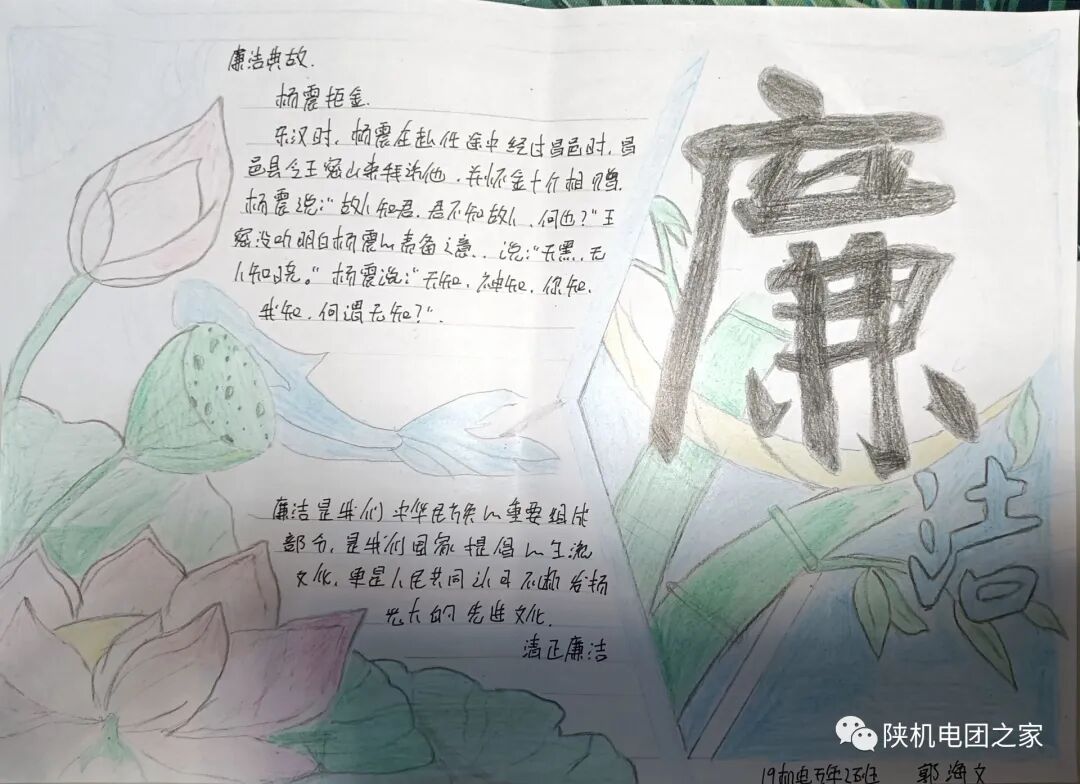 廉洁典故.
杨震拒金.
东汉时,杨震在赴任途中经过昌邑时,昌
邑县令王密山来拜访他,并怀金十斤相赠.
杨震说:"故人知君,君不知故人,何也?"王
密没听明白杨震的责备之意..说:"天黑..无
人知晓。" 杨震说:"天知,神知,你知,
我知,何谓无知?".
廉洁是我们中华民族的重要组成
部分,是我们国家提倡的主流
文化,更是人民共同认可不断发扬
光大的先进文化.
清正廉洁
廉
洁
陕机电团之家
19机电五年2班 郭海文